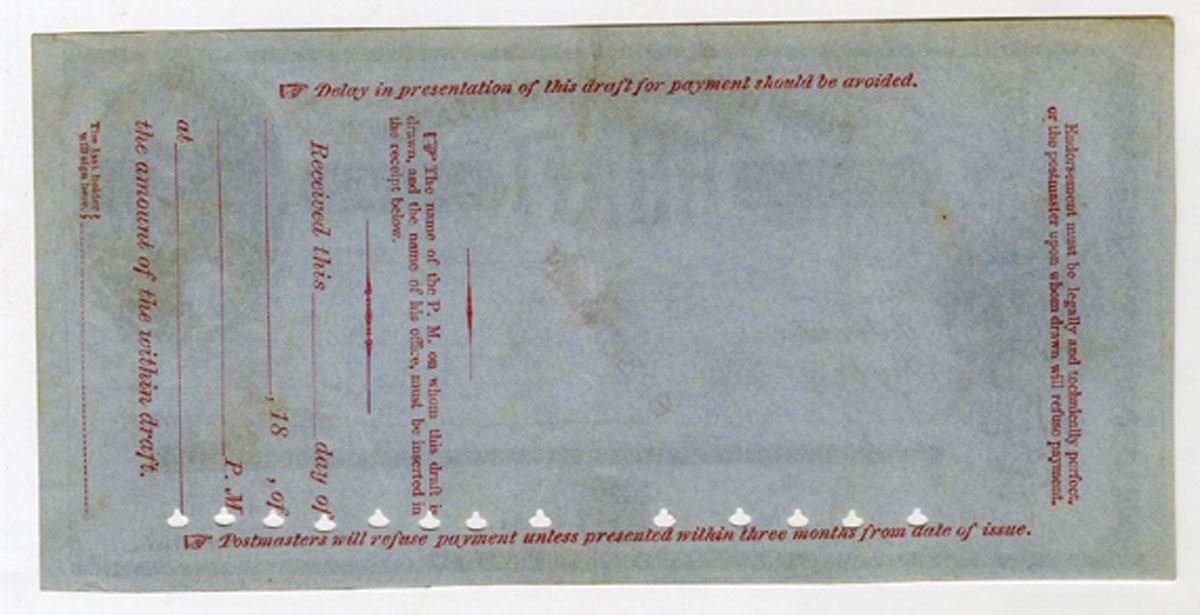 ☞ Delay in presentation of this draft for payment should be avoided.
Endorsement must be legally and technically perfect,
or the postmaster upon whom drawn will refuse payment.
☞ The name of the P. M. on whom this draft is
drawn, and the name of his office, must be inserted in
the receipt below.
Received this day of
, 18 , of
P. M.
at
the amount of the within draft.
The last holder
will sign here.
☞ Postmasters will refuse payment unless presented within three months from date of issue.